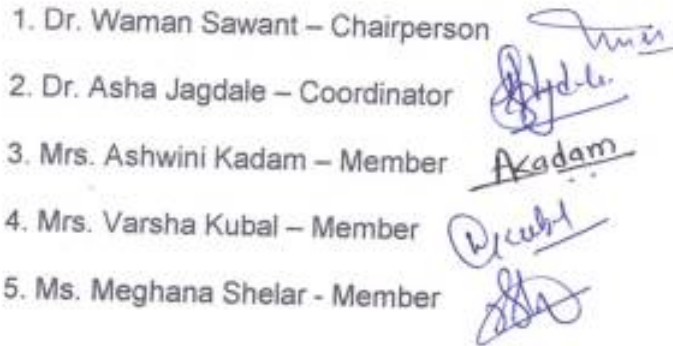 1. Dr. Waman Sawant – Chairperson
2. Dr. Asha Jagdale – Coordinator
3. Mrs. Ashwini Kadam – Member Akadam
4. Mrs. Varsha Kubal – Member
5. Ms. Meghana Shelar - Member